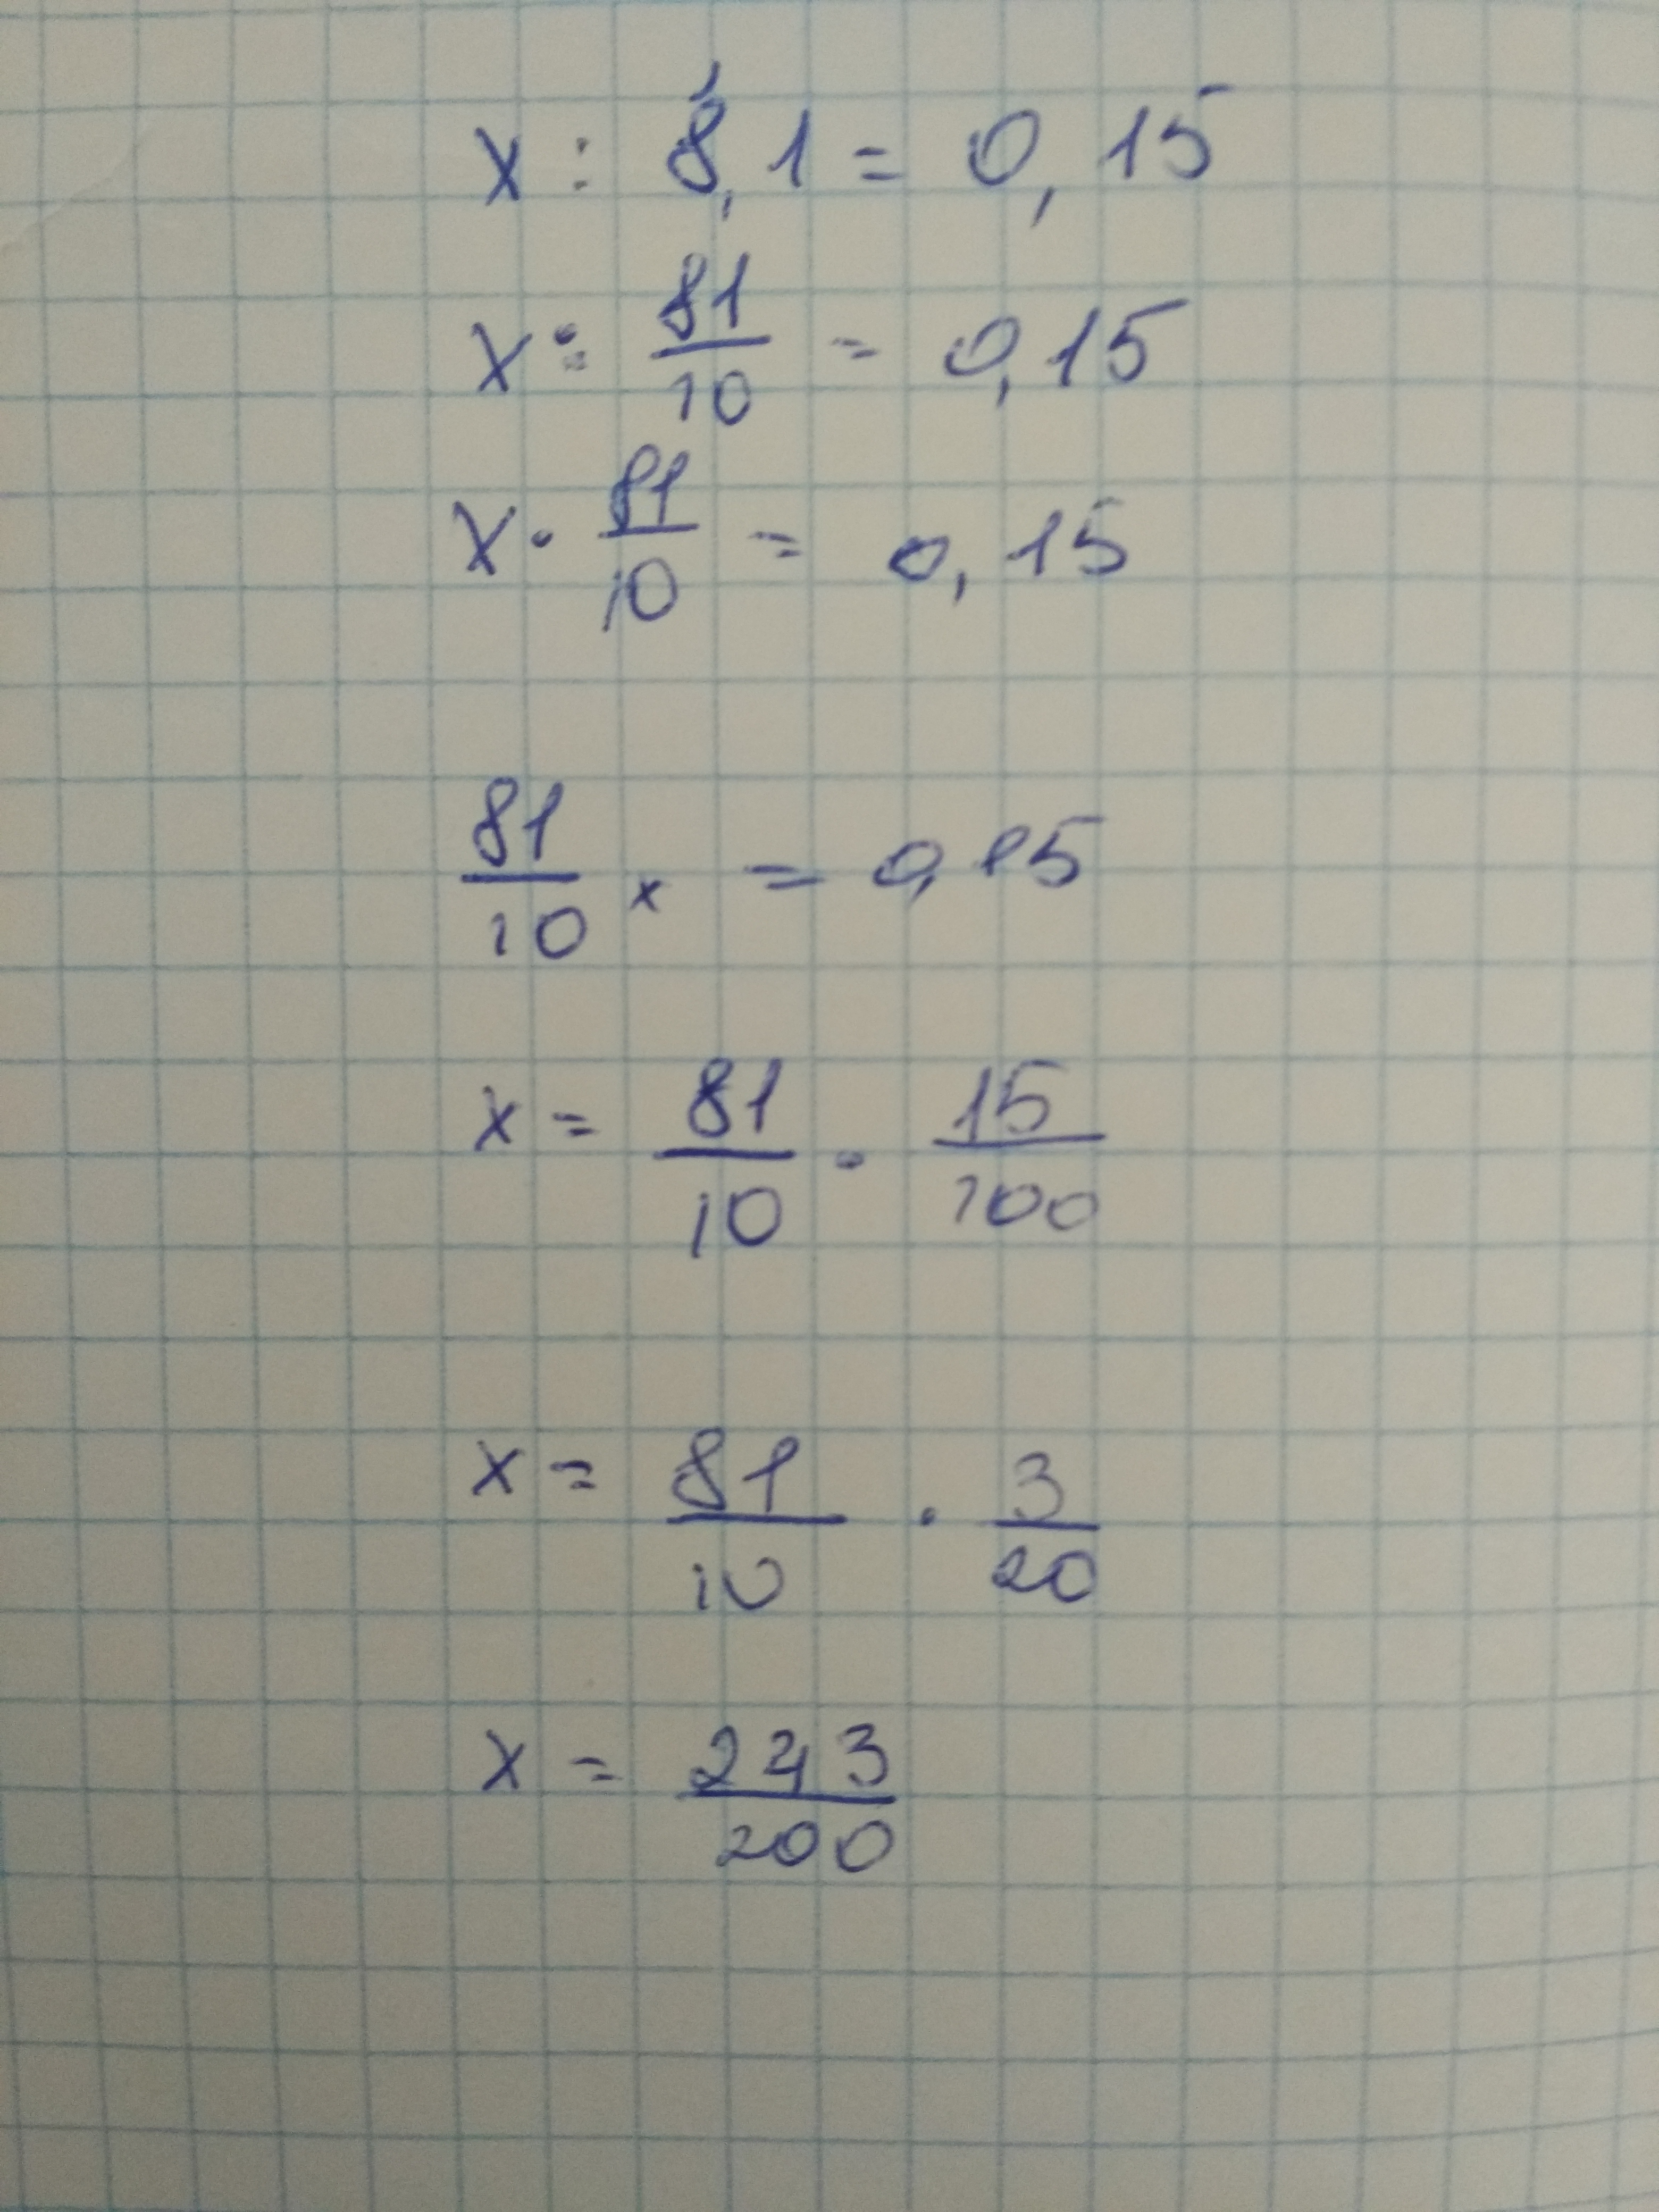 x : 8,1 = 0,15
x : 81/10 = 0,15
x · 81/10 = 0,15
81/10 x = 0,15
x = 81/10 · 15/100
x = 81/10 · 3/20
x = 243/200